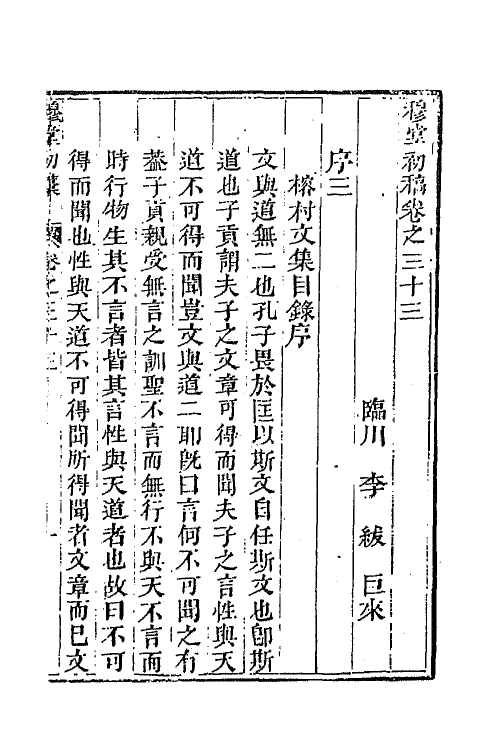 穆堂初稿卷之三十三
臨川 李 紱 巨來
序三
榕村文集目錄序
文與道無二也孔子畏於匡以斯文自任斯文也卽斯
道也子貢謂夫子之文章可得而聞夫子之言性與天
道不可得而聞豈文與道二耶旣曰言何不可聞之有
葢子貢親受無言之訓聖不言而無行不與天不言而
時行物生其不言者皆其言性與天道者也故曰不可
得而聞也性與天道不可得聞所得聞者文章而已文
穆堂初稾 卷之三十三 一